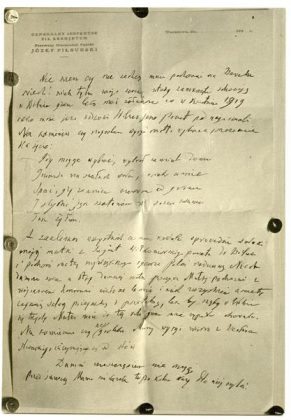 GENERALNY INSPEKTOR
SIŁ ZBROJNYCH
Pierwszy Marszałek Polski
JÓZEF PIŁSUDSKI
Warszawa, dn.
193 r.
Nie wiem czy nie zechcą mnie pochować na Wawelu
Niech! Niech tylko moje serce wtedy zamknięte schowają
w Wilnie gdzie leżą moi żołnierze co w kwietniu 1919
roku mnie jako wodzowi Wilno jako prezent pod nogi rzucili
Na kamieniu czy nagrobku wyryć motto wybrane przezemnie
dla życia
Gdy mogąc wybrać, wybrał zamiast domu
Gniazdo na skałach orła, niechaj umie
Spać, gdy źrenice czerwone od gromu
I słychać jęk szatanów w sosen szumie
Tak żyłem
A zaklinam wszystkich co mnie kochali sprowadzić zwłoki
mojej matki z Sugint Wiłkomirskiego powiatu do Wilna
i pochować matkę największego rycerza Polski nademną. Niech
dumne serce u stóp dumnej matki spoczywa. Matkę pochować z
wojskowemi honorami ciało na lawecie i niech wszystkie armaty
zagrzmią salwą pożegnalną i powitalną tak by szyby w Wilnie
się trzęsły. Matka mnie do tej roli jaka mnie wypadła chowała.
Na kamieniu czy nagrobku Mamy wyryć wiersz z Wacława
Słowackiego zaczynający się od słów
Dumni nieszczęściem nie mogą
Przed śmiercią Mama mi kazała to po kilka razy dla niej czytać